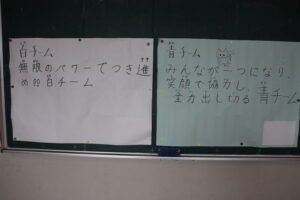 白チーム
無限のパワーでつき進
め!!! 白チーム
青チーム
みんなが一つになり、
笑顔で協力し、
全力出し切る 青チーム